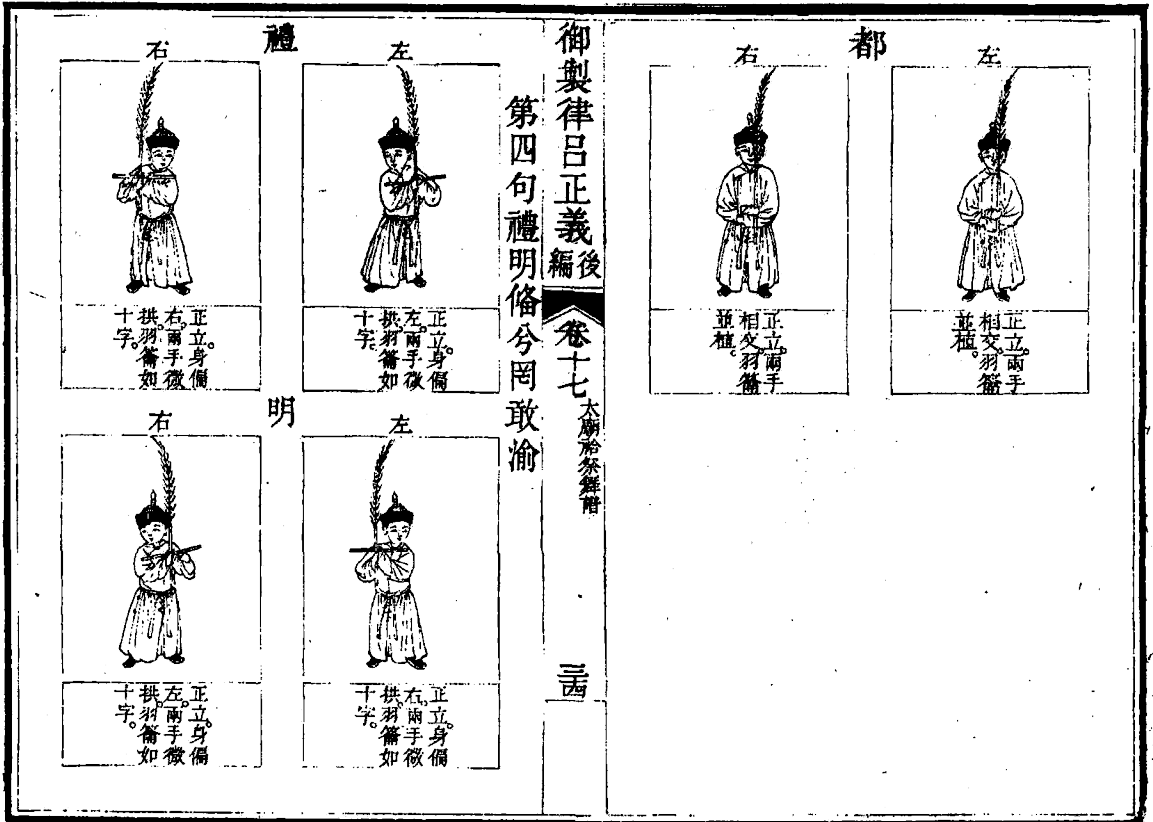 都
左
正立。兩手
相交。羽籥
並植。
右
正立。兩手
相交。羽籥
並植。
御製律呂正義後編
卷十七
太廟祫祭舞譜
三十四
第四句禮明偹兮罔敢渝
禮
左
正立。身偏
左。兩手微
拱。羽籥如
十字。
右
正立。身偏
右。兩手微
拱。羽籥如
十字。
明
左
正立。身偏
右。兩手微
拱。羽籥如
十字。
右
正立。身偏
左。兩手微
拱。羽籥如
十字。